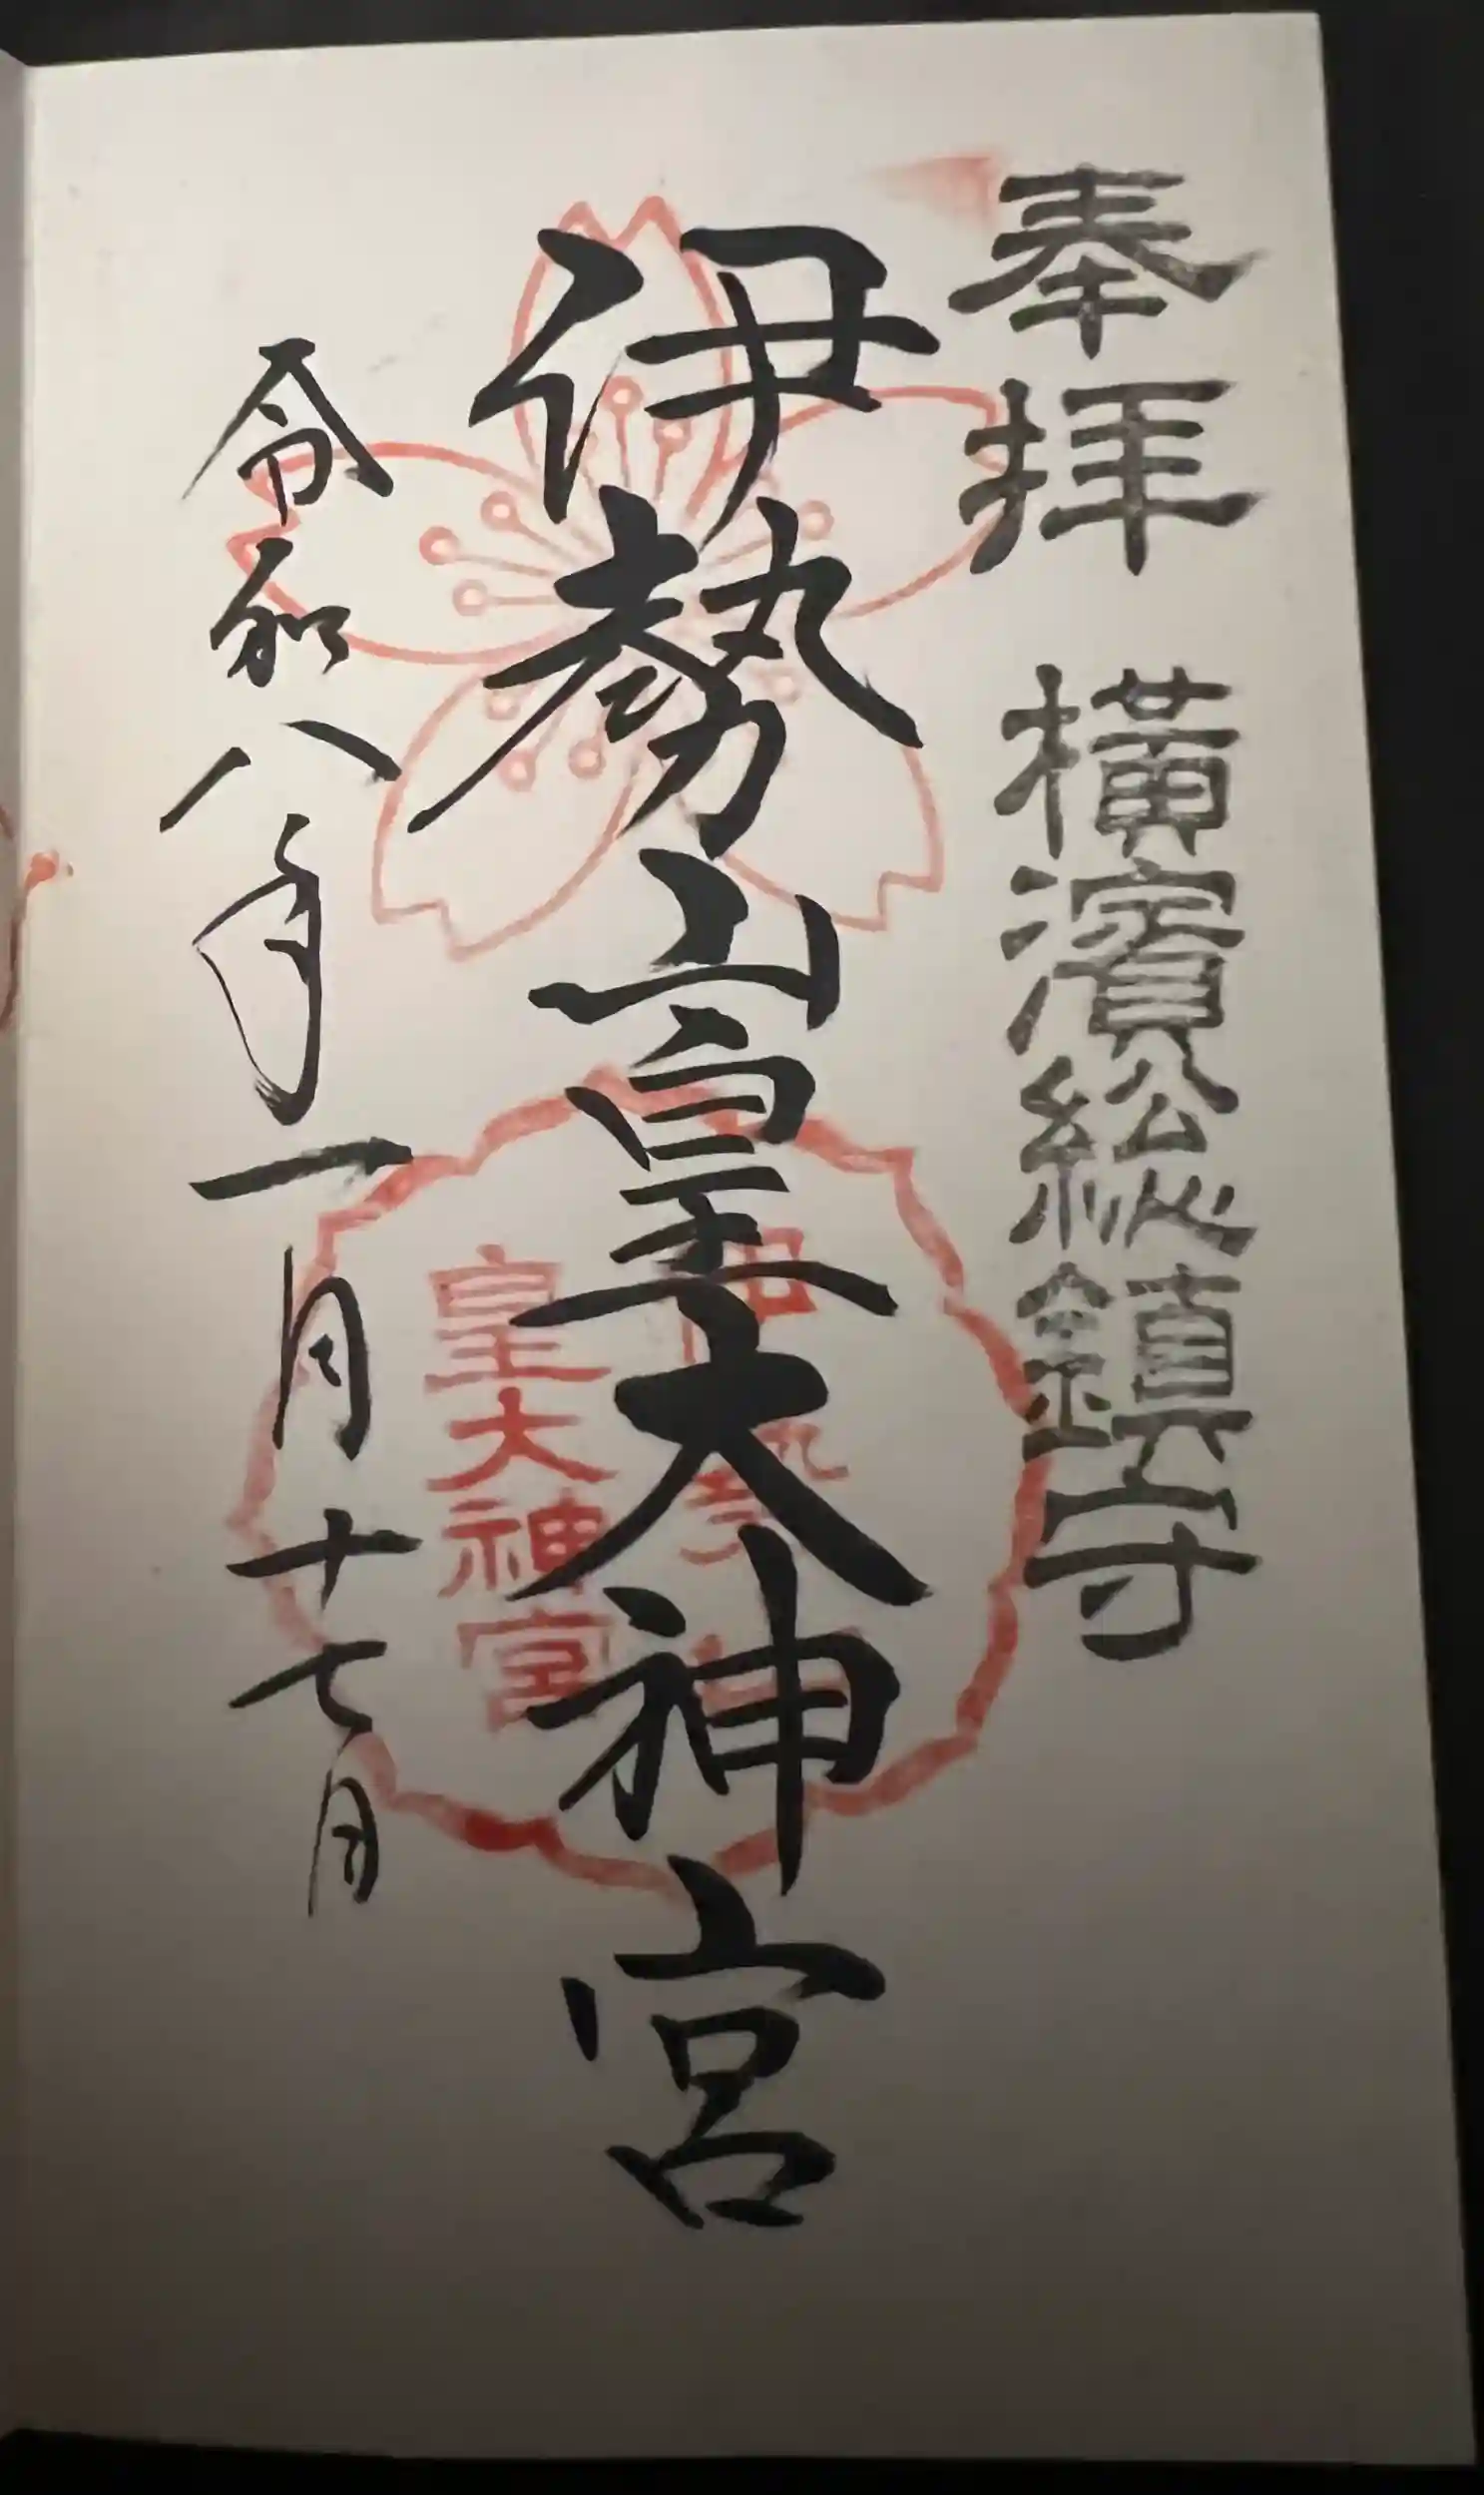 奉拝 横濱総鎮守
伊勢山皇大神宮
伊勢山
皇大神宮
令和八年一月十七日